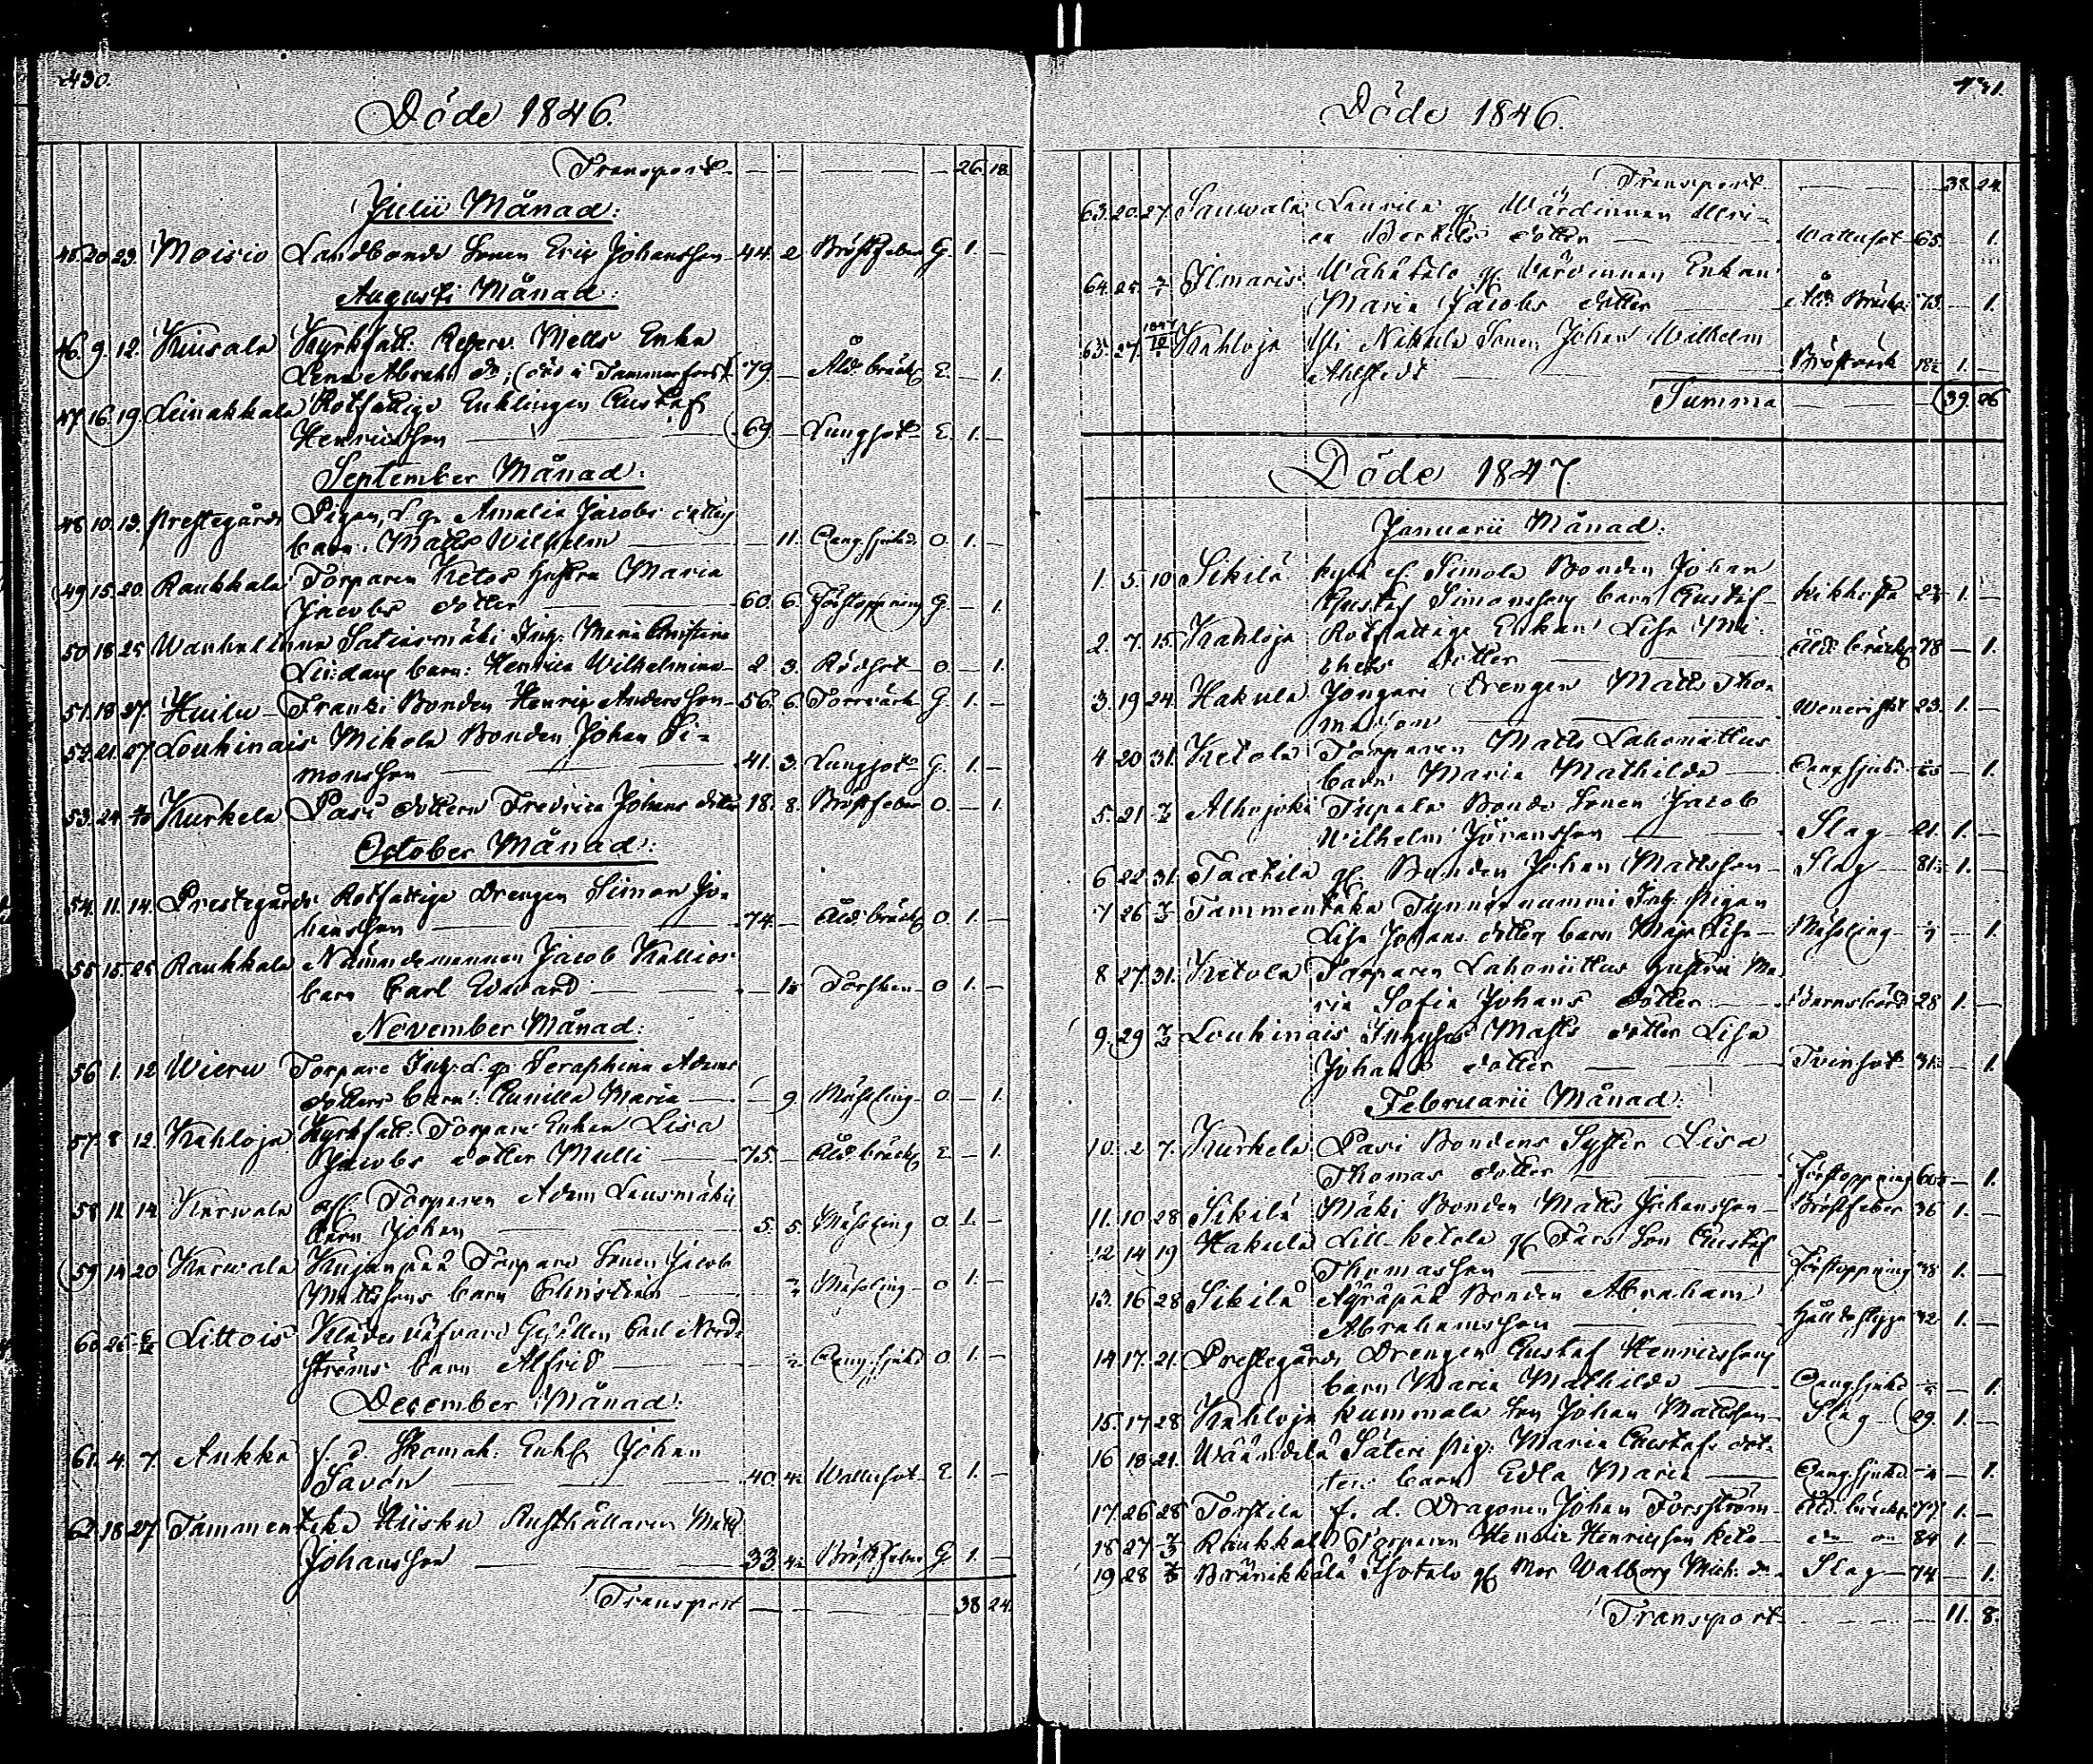 430.
Döde 1846.
Transport 26. 18.
Julii Månad:
45. 20. 23. Moisio Landbonde Sonen Eric Johansson 44. 2 Bröstfeber G. 1. —
Augusti Månad:
46. 9. 12. Kuisala Kyrkfatt. Reserv. Matts Enka
Lena Abrah. dr. 79 — Åld. bräckl. E. — 1.
47. 16. 19. Leinakkala Rotfattige Enklingen Gustaf
Henricsson 69. — Lungsot E. 1. —
September Månad:
48. 10. 13. Prestegårds Pigan, d. q. Amalia Jacobs dotters
barn. Matts Wilhelm — 11. Oang. sjukd. O. 1. —
49. 15. 20. Raukkala Torparen Ketos hustru Maria
Jacobs dotter 60. 6. Förstoppning G. — 1.
50. 18. 25 Wanhalinna Inh. Maria Christina
Lindans barn: Henrica Wilhelmina 2. 3. Rödsot O. — 1.
51. 18. 27. Huilu Franki Bonden Henric Andersson 56. 6. Torrvärk G. 1. —
52. 21. 27 Loukinais Mikola Bonden Johan Si-
monsson 41. 3. Lungsot G. 1. —
53. 24. Kurkela Pasi dottern Fredrica Johans dotter 18. 8. Bröstfeber O. — 1.
October Månad:
54. 11. 14. Prestegårds Rotfattige Drengen Simon Jo-
hansson 74. — Åld. bräckl. O. 1. —
55. 15. 25 Raukkala Nämndemannen Jacob Kallios
barn Carl Edvard — Torsken O 1. —
November Månad:
56. 1. 12 Wieru Torpare Inh. d. q. Seraphina Adams
dotters barn: Gunilla Maria — 9 Mässling O. — 1.
57. 8. 12. Kahloja Kyrkfatt: Torpare Enkan Lisa
Jacobs dotter Mulli 75. — Åld. bräckl. E — 1.
58 11. 14. Karwala Torparen Adam
barn Johan 5. 5. Mässling O. 1. —
59 14 20 Karwala Kujanpää Torpare Sonen Jacob
Mattssons barn Christian Mässling O 1. —
60 25 Littois Klädesväfvare Gesällen Carl Nord-
ströms barn Alfrid Oang. sjukd. O 1. —
December Månad:
61. 4. 7. Aukka f. d. Skomak: Enkl. Johan
Savón 40. Wattusot E. 1. —
62. 18. 27 Tammentaka Hiisku Rusthållaren Matts
Johansson 33. Bröstfeber G 1. —
Transport 38 24.
431.
Döde 1846.
Transport 38. 24.
63. 20. 27. Sauwala Laurila gl. Wärdinnan Ulri-
ca Bertils dotter Wattusot 65. 1.
64. 25. Ilmaris Wähätalo gl. Wärdinnan Enkan
Maria Jacobs dotter Åld. Bräckl. 73. — 1.
65. 27. 1847 Kahloja Yli Nakula Sonen Johan Wilhelm
Ahlstedt Bröstvärk 1. —
Summa 39. 26
Döde 1847.
Januarii Månad:
1. 5. 10 Sikilä kylä gl. Simola Bonden Johan
Gustaf Simonssons barn Gustaf Kikhosta 1. —
2. 7. 15. Kahloja Rotfattige Enkan Lisa Mi-
chels dotter Åld. bräckl. 78 — 1.
3. 19 24. Hakula Jongari Drengen Matts Tho-
masson Venerisk 23. 1. —
4. 20 31. Ketola Torparen Matts Lahoniittus
barn Maria Mathilda Oang. sjukd. — 1.
5. 21 Alhojoki Tupala Bonde Sonen Jacob
Wilhelm Göransson Slag 21. 1. —
6 22 31. Taatila gl. Bonden Johan Mattsson Slag 81. 1. —
7 26 Tammentaka Tynnörnummi Inh. Pigan
Lisa Johans dotters barn Maja Lisa Mässling — 1.
8 27. 31. Ketola Torparen Lahoniittus hustru Ma-
ria Sofia Johans dotter Barnsbörd 28 1. —
9. 29 Loukinais Inhyses Matts dotter Lisa
Johans dotter Tvinsot 31. 1.
Februarii Månad:
10. 2 7. Kurkela Pasi Bondens Syster Lisa
Thomas dotter Förstoppning — 1.
11. 10 28 Sikilä Mäki Bonden Matts Johansson Bröstfeber 36 1. —
12 14 19 Hakula Lill-ketola gl. Fars Son Gustaf
Thomasson Förstoppning 38 1. —
13. 16 28 Sikilä Äyräpää Bonden Abraham
Abrahamsson Håll o. styng 42 1. —
14 17. 21. Prestegårds Drengen Gustaf Henricssons
barn Maria Mathilda Oang. sjukd. — 1.
15. 17 28 Kahloja kummala Son Johan Mattsson Slag 29. 1. —
16 18 21. Wäändelä Säteri Pig. Maria Gustafs dot-
ters barn Edla Maria Oang. sjukd. — 1.
17. 26 28 Torstila f. d. Dragonen Johan Forsström Åld. bräckl. 77. 1. —
18 27 Raukkala Torparen Henric Henricsson Keto 84 1. —
19 28 Bränikkälä Isotalo gl. Mor Walborg Mich. dr. Slag 74 — 1.
Transport 11. 8.